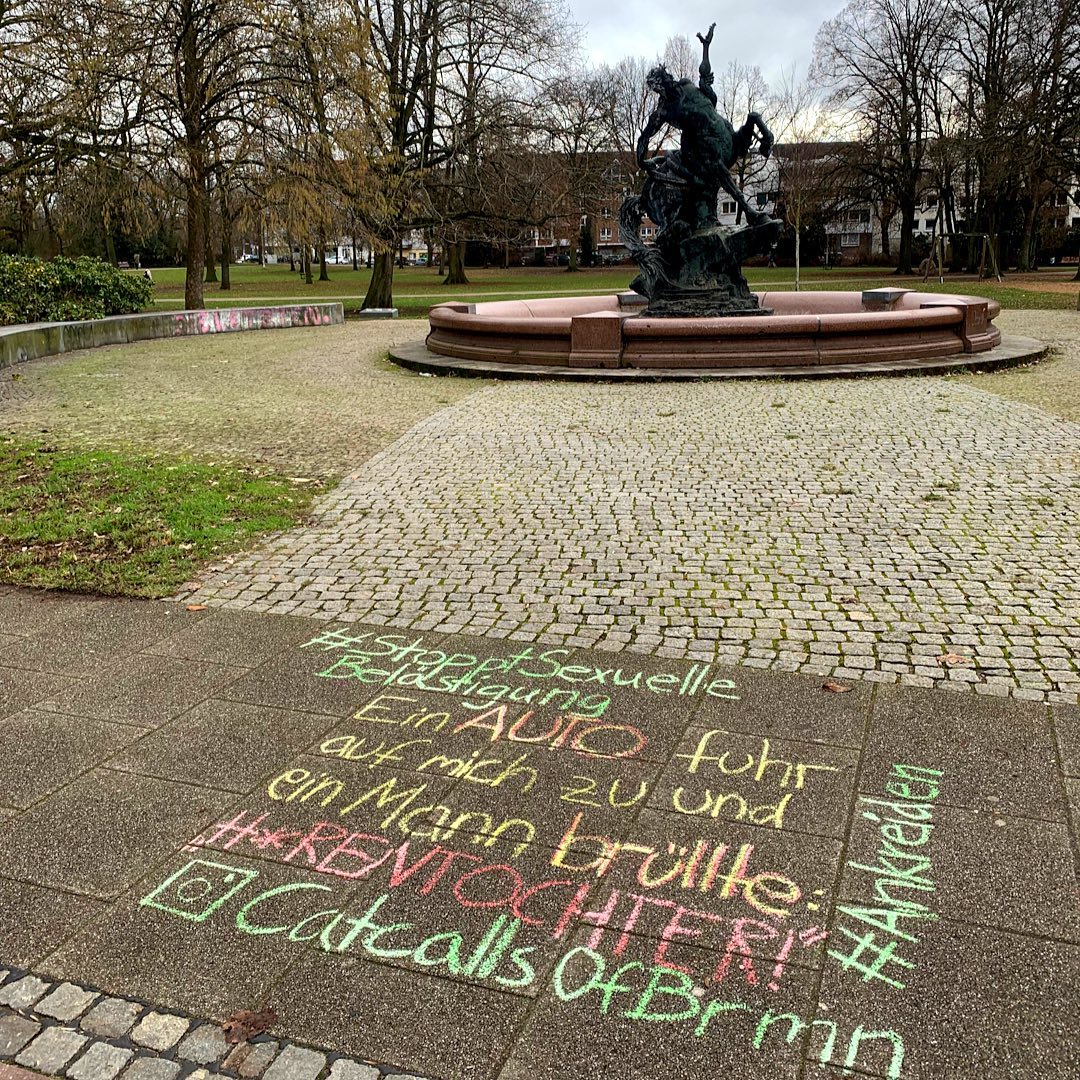 #StopptSexuelle
Belästigung
Ein AUTO fuhr
auf mich zu und
ein Mann brüllte:
"H**RENTOCHTER!"
CatcallsOfBrmn
#Ankreiden